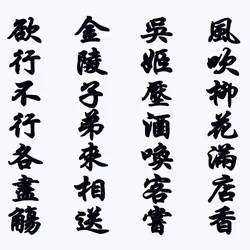 風吹柳花滿店香
吳姬壓酒喚客嘗
金陵子弟來相送
欲行不行各盡觴